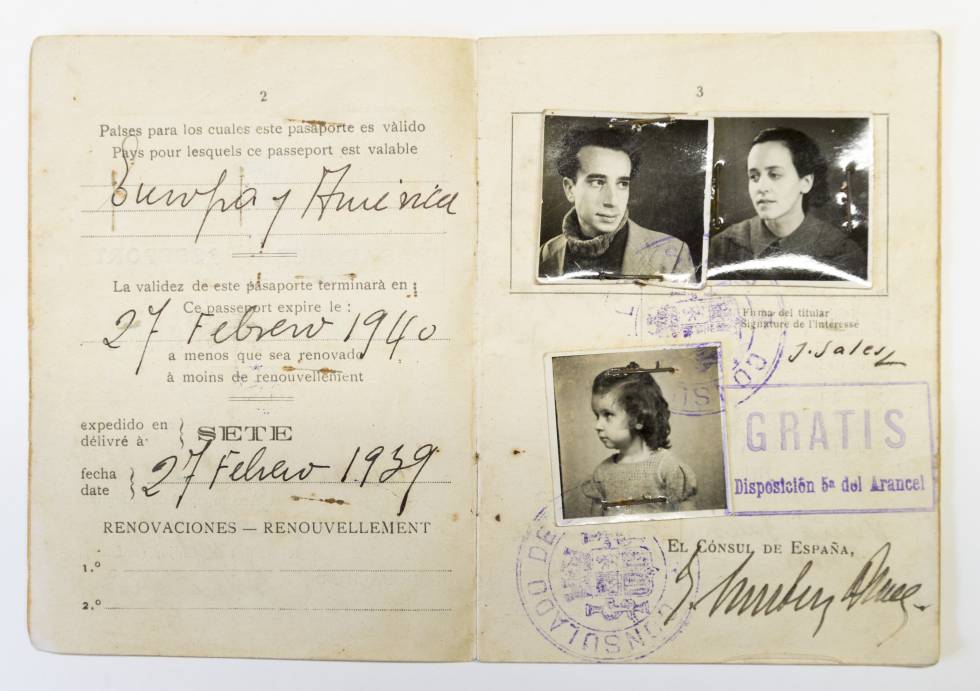 2
Países para los cuales este pasaporte es vàlido
Pays pour lesquels ce passeport est valable
Europa y América
La validez de este pasaporte terminarà en :
Ce passeport expire le :
27 Febrero 1940
a menos que sea renovado
à moins de renouvellement
expedido en
délivré à·
SETE
fecha
date
27 Febrero 1939
RENOVACIONES — RENOUVELLEMENT
1.º
2.º
3
Firma del titular
Signature de l'intéressé
J. Sales
GRATIS
Disposición 5ª del Arancel
EL CÓNSUL DE ESPAÑA,
CONSULADO DE